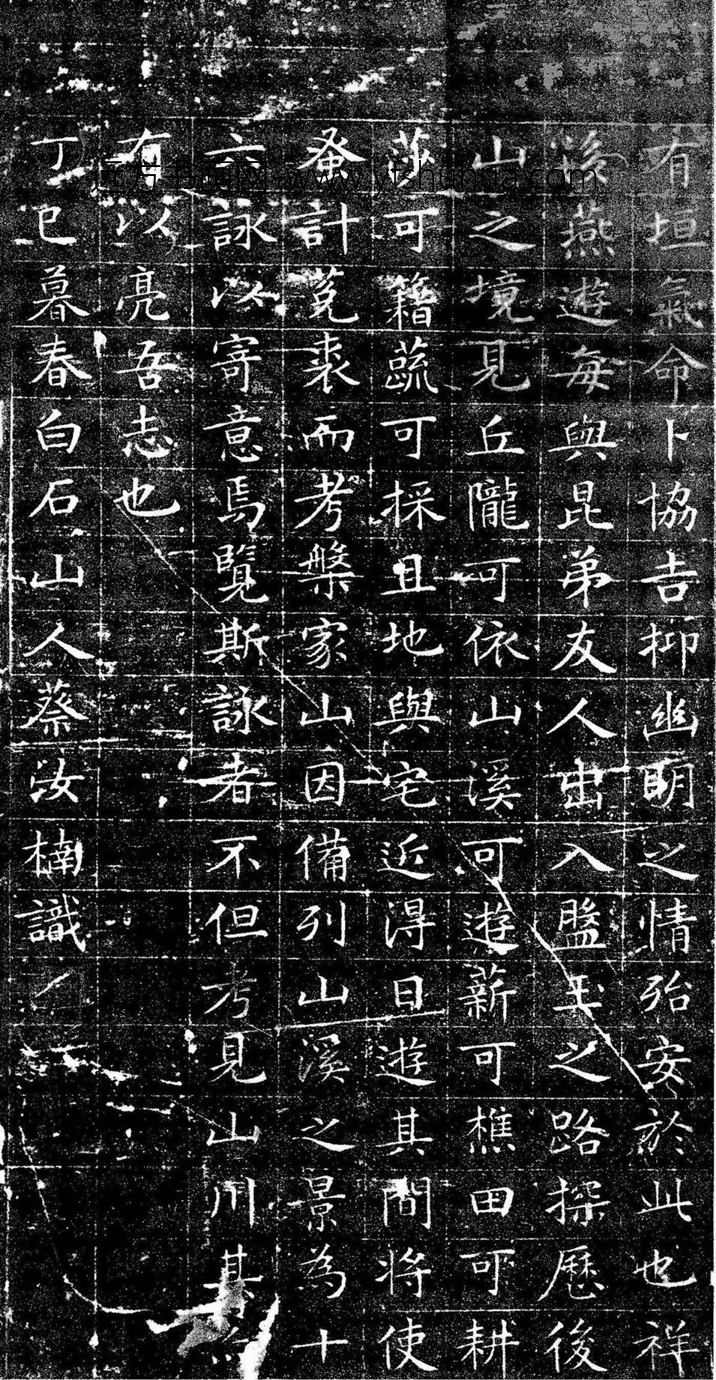 有垣氣命卜協吉抑幽明之情殆安於此也祥
後燕遊每與昆弟友人出入盤玉之路探歷後
山之境見丘隴可依山溪可遊薪可樵田可耕
莎可籍蔬可採且地與宅近得日遊其間将使
蚤計菟裘而考槃家山因備列山溪之景為十
六詠以寄意焉覽斯詠者不但考見山川其
有以亮吾志也
丁巳暮春白石山人蔡汝楠識